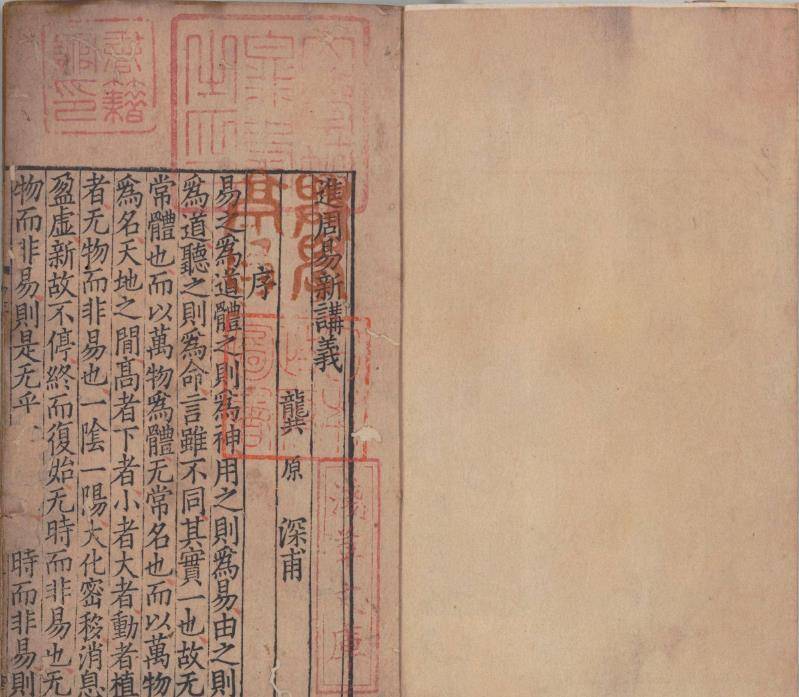 進周易新講義
龔原 深甫
序
易之爲道體之則爲神用之則爲易由之則
爲道聽之則爲命言雖不同其實一也故无
常體也而以萬物爲體无常名也而以萬物
爲名天地之間髙者下者小者大者動者植
者无物而非易也一隂一陽大化密移消息
盈虚新故不停終而復始无時而非易也无
物而非易則是无乎 時而非易則
淺草文庫